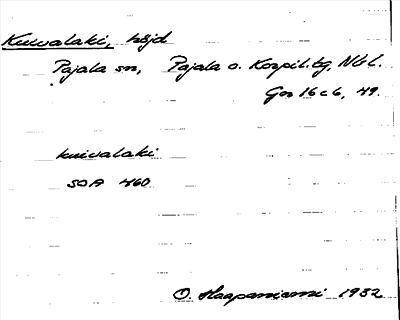 Kuivalaki, höjd
Pajala sn, Pajala o. Korpil. tg, Nbl.
Gn 16 c 6, 49.
kuivalaki
SOA 460
O. Haapaniemi 1932